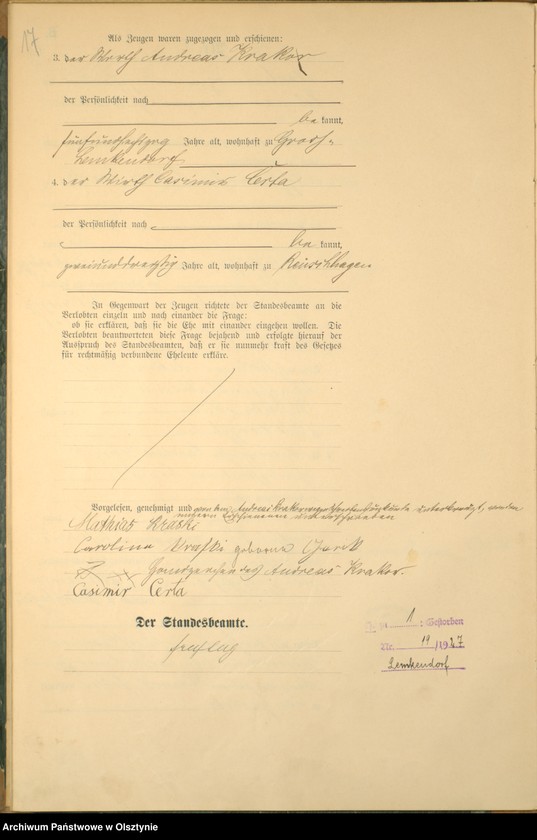 17
Als Zeugen waren zugezogen und erschienen:
3. der Wirth Andreas Krakor
der Persönlichkeit nach
be kannt,
fünfundsechszig Jahre alt, wohnhaft zu Groß-
Lemkendorf
4. der Wirth Casimir Certa
der Persönlichkeit nach
be kannt,
zweiunddreißig Jahre alt, wohnhaft zu Reuschhagen
In Gegenwart der Zeugen richtete der Standesbeamte an die
Verlobten einzeln und nach einander die Frage:
ob sie erklären, daß sie die Ehe mit einander eingehen wollen. Die
Verlobten beantworteten diese Frage bejahend und erfolgte hierauf der
Ausspruch des Standesbeamten, daß er sie nunmehr kraft des Gesetzes
für rechtmäßig verbundene Eheleute erkläre.
Vorgelesen, genehmigt und von dem Andreas Krakor wegen unterkreuzt, von den
unterschrieben
Mathias Kraski
Carolina Kraski geborene
Handzeichen des Andreas Krakor.
Casimir Certa
Der Standesbeamte.
1 : Gestorben
Nr. 19 /1927
Lemkendorf
Archiwum Państwowe w Olsztynie